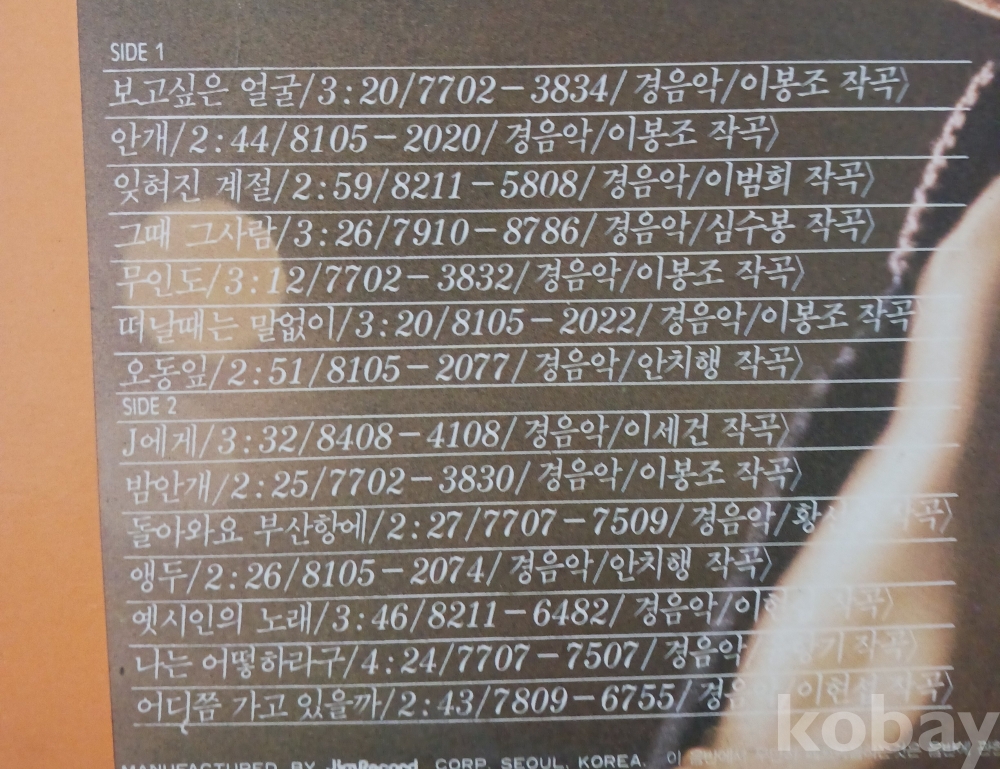 SIDE 1
보고싶은 얼굴/3:20/7702-3834/ 경음악/이봉조 작곡〉
안개/2:44/8105-2020/ 경음악/이봉조 작곡〉
잊혀진 계절/2:59/8211-5808/ 경음악/이범희 작곡〉
그때 그사람/3:26/7910-8786/ 경음악/심수봉 작곡〉
무인도/3:12/7702-3832/경음악/이봉조 작곡〉
떠날때는 말없이/3:20/8105-2022/ 경음악/이봉조 작곡
오동잎/2:51/8105-2077/ 경음악/안치행 작곡〉
SIDE 2
J에게/3:32/8408-4108/ 경음악/이세건 작곡〉
밤안개/2:25/7702-3830/ 경음악/이봉조 작곡〉
돌아와요 부산항에/2:27/7707-7509/ 경음악/ 작곡〉
앵두/2:26/8105-2074/ 경음악/안치행 작곡〉
옛시인의 노래/3:46/8211-6482/ 경음악/ 작곡〉
나는 어떻하라구/4:24/7707-7507/ 경음악 작곡〉
어디쯤 가고 있을까/2:43/7809-6755/ 작곡〉
MANUFACTURED BY CORP. SEOUL, KOREA. 이
kobay